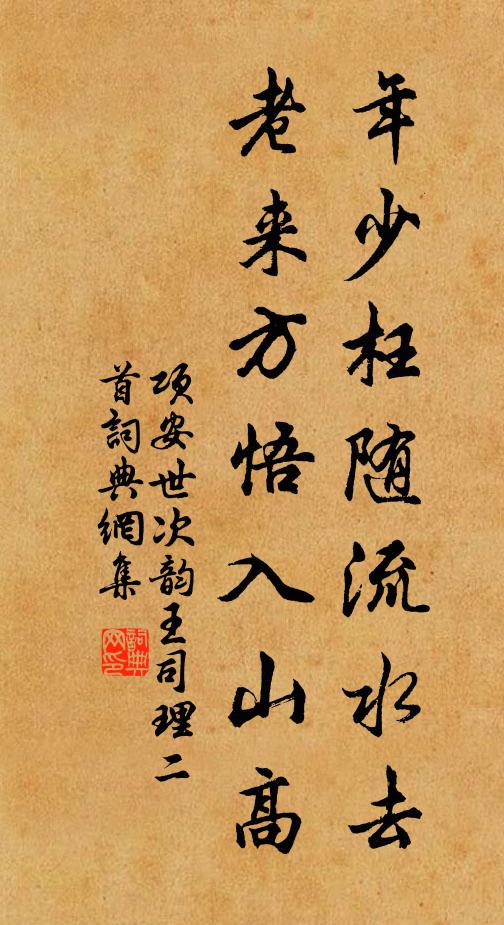 年少枉随流水去
老来方悟入山高
项安世次韵王司理二
首詞典網集
詞典网印